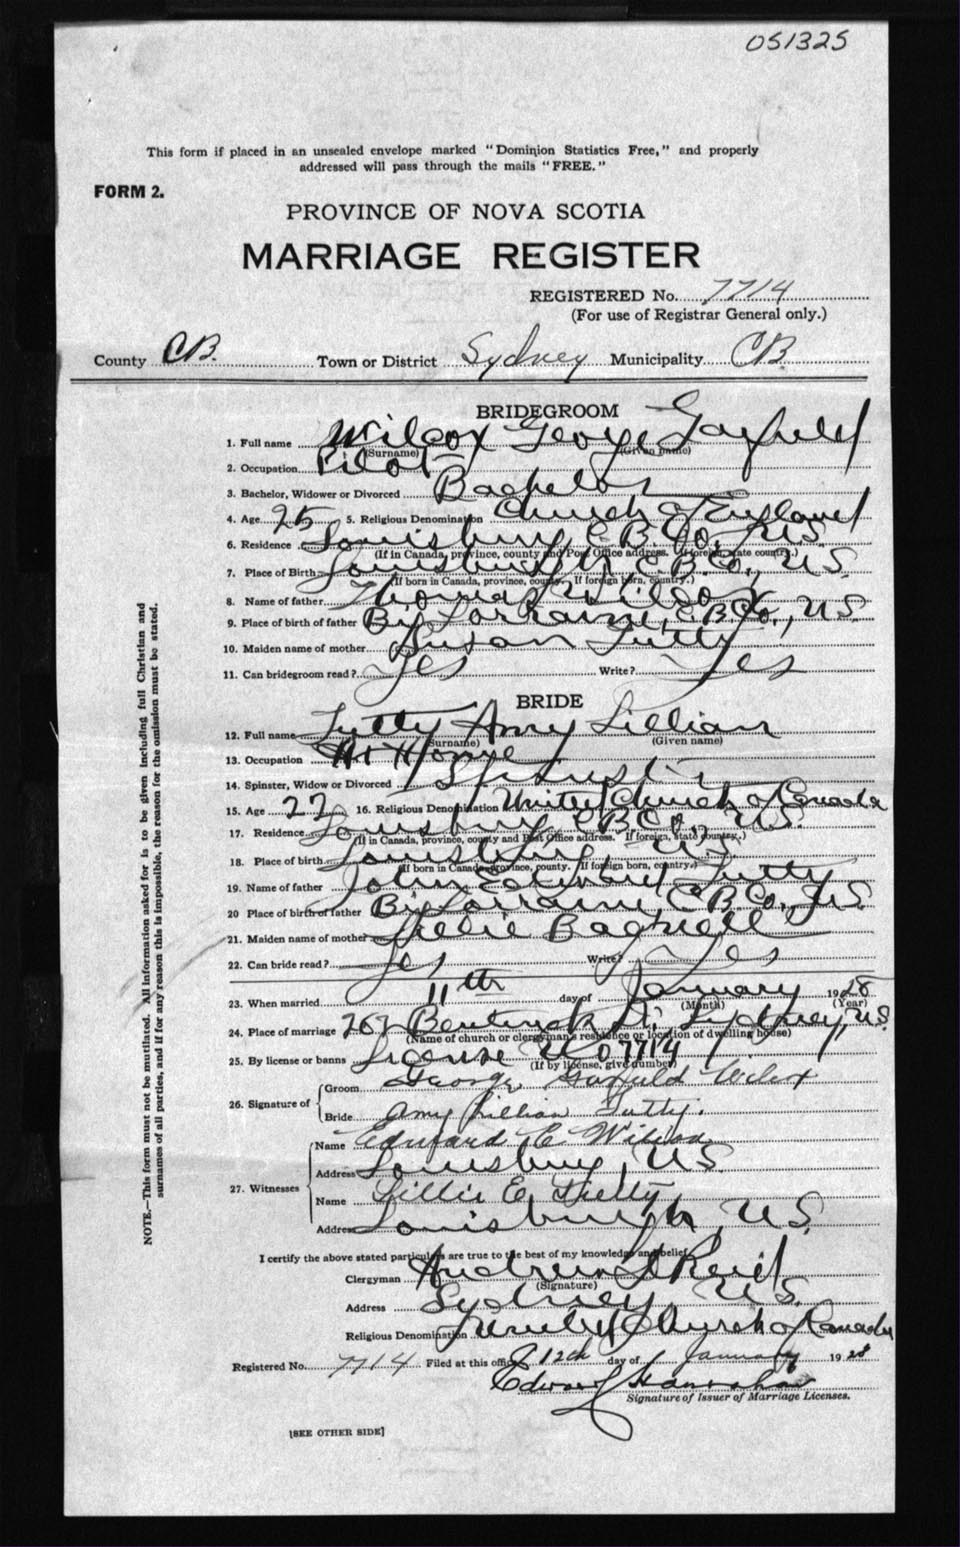 051325
This form if placed in an unsealed envelope marked "Dominion Statistics Free," and properly
addressed will pass through the mails "FREE."
FORM 2.
PROVINCE OF NOVA SCOTIA
MARRIAGE REGISTER
REGISTERED No. 7714
(For use of Registrar General only.)
County CB. Town or District Sydney Municipality CB
BRIDEGROOM
1. Full name Wilcox George Garfield
(Surname) (Given name)
2. Occupation Pilot
3. Bachelor, Widower or Divorced Bachelor
4. Age 25 5. Religious Denomination Church of England
6. Residence Louisburg, C.B. Co., N.S.
(If in Canada, province, county and Post Office address. If foreign, state country.)
7. Place of Birth Louisburg, C.B. Co., N.S.
(If born in Canada, province, county. If foreign born, country.)
8. Name of father Thomas Wilcox
9. Place of birth of father Big Lorraine, C.B. Co., N.S.
10. Maiden name of mother Susan Tutty
11. Can bridegroom read? Yes Write? Yes
BRIDE
12. Full name Tutty Amy Lillian
(Surname) (Given name)
13. Occupation At Home
14. Spinster, Widow or Divorced Spinster
15. Age 22 16. Religious Denomination United Church of Canada
17. Residence Louisburg, C.B. Co., N.S.
(If in Canada, province, county and Post Office address. If foreign, state country.)
18. Place of birth Louisburg, N.S.
(If born in Canada, province, county. If foreign born, country.)
19. Name of father John Edward Tutty
20 Place of birth of father Big Lorraine, C.B. Co., N.S.
21. Maiden name of mother Lillie Bagnell
22. Can bride read? Yes Write? Yes
23. When married 11th day of January 1928
(Month) (Year)
24. Place of marriage 262 Bentinck St. Sydney, N.S.
(Name of church or clergyman's residence or location of dwelling house)
25. By license or banns License No 7714
(If by license, give number)
26. Signature of Groom George Garfield Wilcox
Bride Amy Lillian Tutty.
27. Witnesses Name Edward C Wilson
Address Louisburg, N.S.
Name Lillie E Tutty
Address Louisburgh, N.S.
I certify the above stated particulars are true to the best of my knowledge and belief
Clergyman Andrew D Reid
(Signature)
Address Sydney, N.S.
Religious Denomination United Church of Canada
Registered No. 7714 Filed at this office 12th day of January 1928
Edward Hanrahan
Signature of Issuer of Marriage Licenses.
[SEE OTHER SIDE]
NOTE.—This form must not be mutilated. All information asked for is to be given including full Christian and
surnames of all parties, and if for any reason this is impossible, the reason for the omission must be stated.